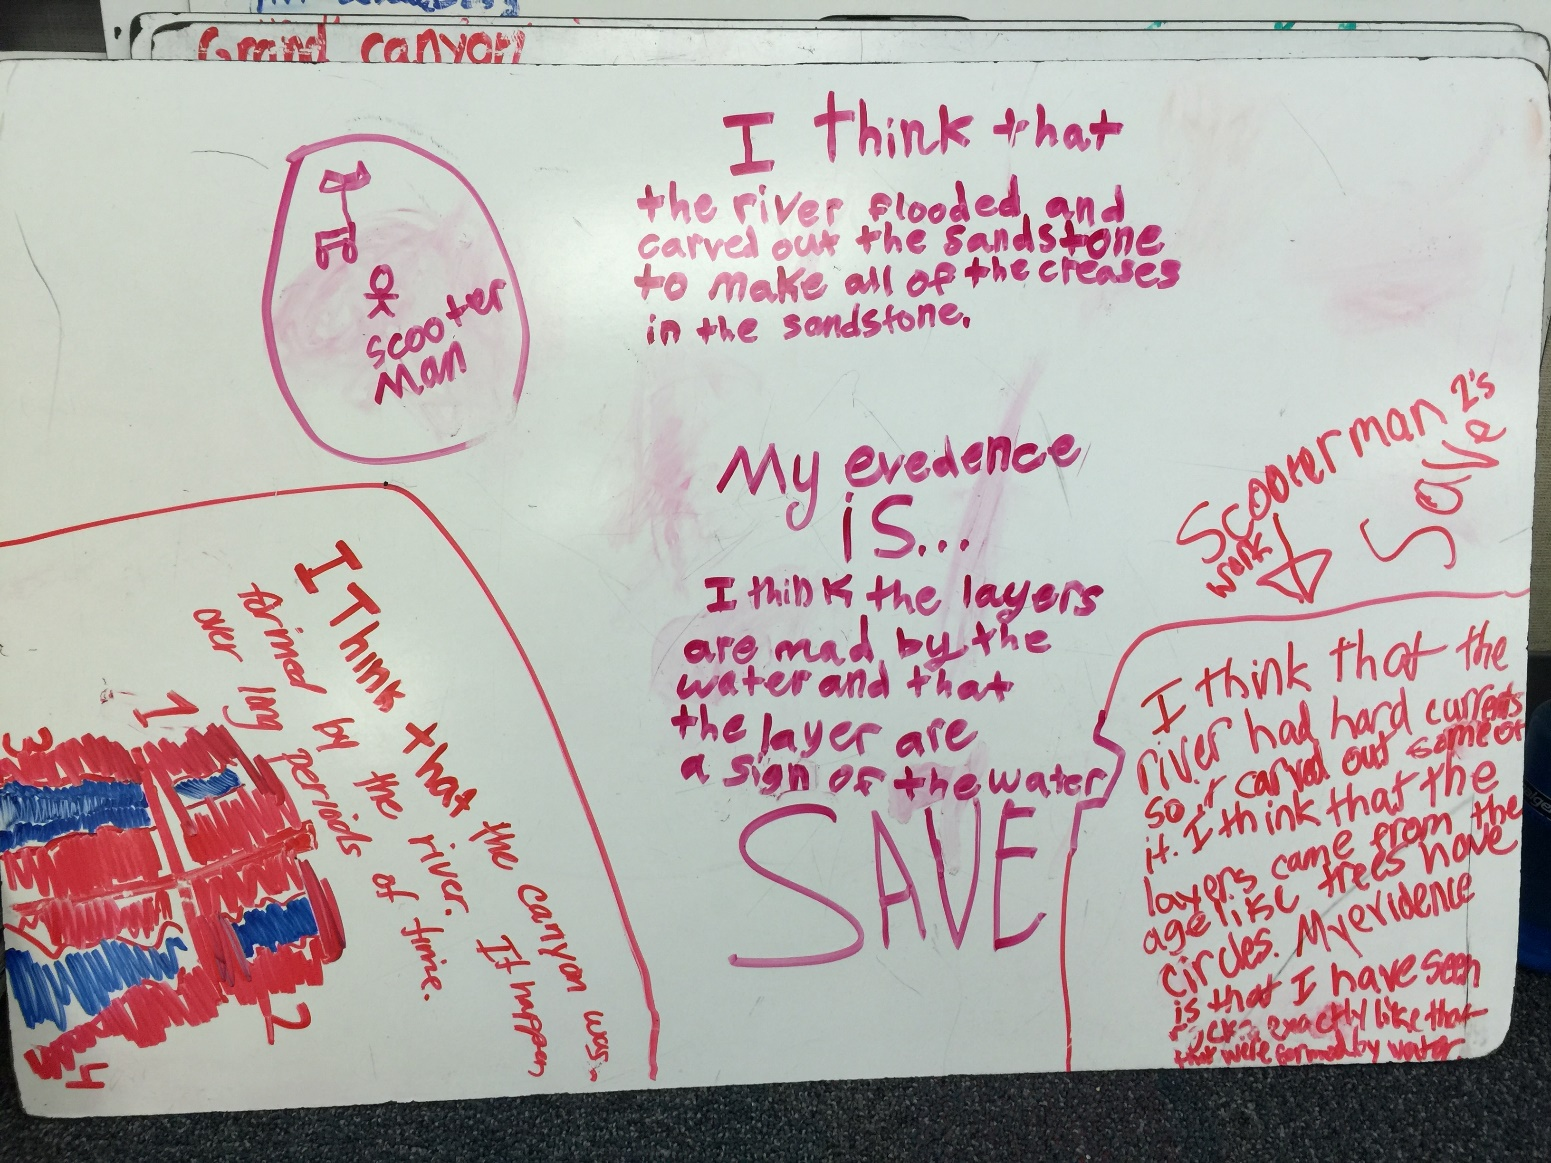 Grand canyon
scooter
man
I think that
the river flooded and
carved out the sandstone
to make all of the creases
in the sandstone.
My evedence
is...
I think the layers
are mad by the
water and that
the layer are
a sign of the water
SAVE
I Think that the canyon was
formed by the river. It happen
over long periods of time.
1
2
3
4
Scooter man 2's
work
Save
I think that the
river had hard currents
so it carved out some of
it. I think that the
layers came from the
age like trees have
circles. My evidence
is that I have seen
rocks exactly like that
that were formed by water.